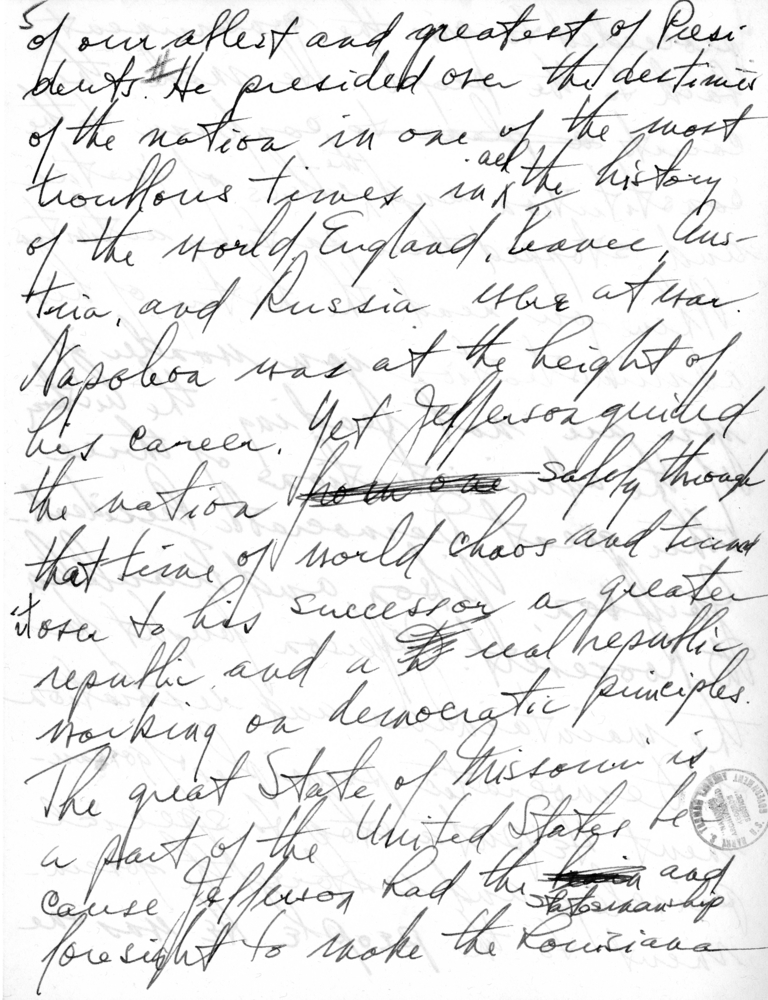 5
of our ablest and greatest of Presi
dents. # He presided over the destinies
of the nation in one of the most
troublous times in all the history
of the world. England, France, Aus-
tria, and Russia were at war.
Napoleon was at the height of
his career. Yet Jefferson guided
the nation from one safely through
that time of world chaos and turned
it over to his successor a greater
republic and a real republic
working on democratic principles.
The great State of Missouri is
a part of the United States be
cause Jefferson had the statesmanship and
foresight to make the Louisiana